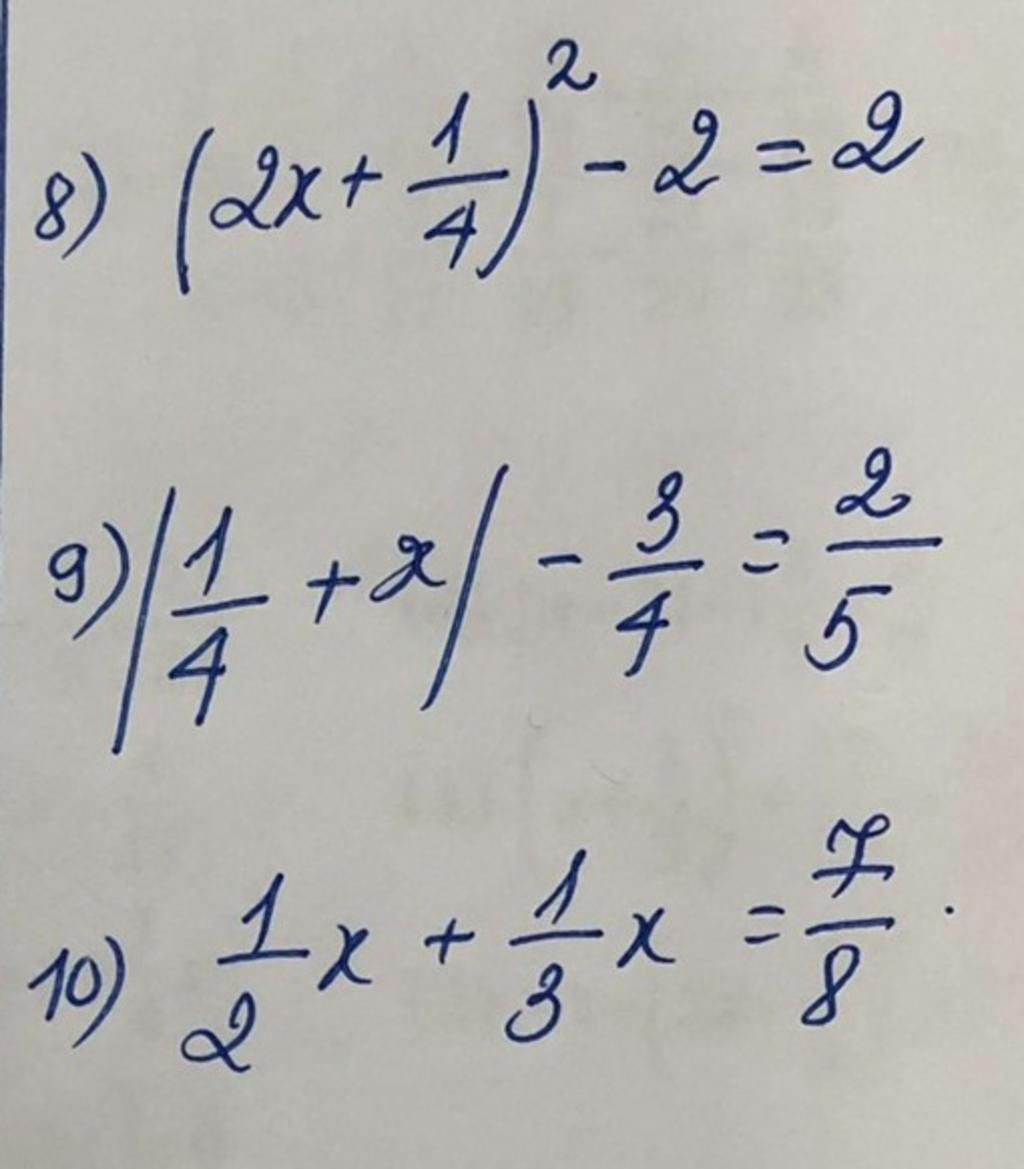 8) (2x + 1/4)² - 2 = 2
9) |1/4 + x| - 3/4 = 2/5
10) 1/2 x + 1/3 x = 7/8 .